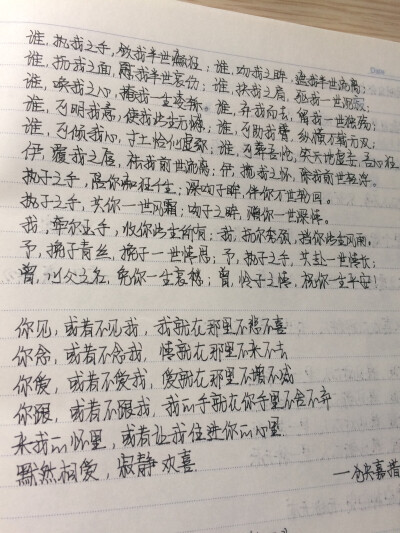 谁,执我之手,敛我半世癫狂;谁,吻我之眸,遮我半世流离;
谁,抚我之面,慰我半世哀伤;谁,扶我之肩,驱我一世沉寂;
谁,唤我之心,掩我一生凌轹。谁,弃我而去,留我一世独殇;
谁,可明我意,使我此生无憾;谁,可助我臂,纵横万载无双;
谁,可倾我心,寸土恰似虚弥;谁,可葬吾怆,笑天地虚妄,吾心狂
伊,覆我之唇,祛我前世流离;伊,揽我之怀,除我前世轻浮。
执子之手,陪你痴狂千生;深吻子眸,伴你万世轮回。
执子之手,共你一世风霜;吻子之眸,赠你一世深情。
我,牵尔玉手,收你此生所有;我,抚尔秀颈,挡你此生风雨,
予,挽子青丝,挽子一世情思;予,执子之手,共赴一世情长;
曾,以父之名,免你一生哀愁;曾,怜子之情,祝你一生平安!
你见,或者不见我,我就在那里不悲不喜
你念,或者不念我,情就在那里不来不去
你爱,或者不爱我,爱就在那里不增不减
你跟,或者不跟我,我的手就在你手里不舍不弃
来我的怀里,或者让我住进你的心里.
默然相爱,寂静欢喜.
—仓央嘉措